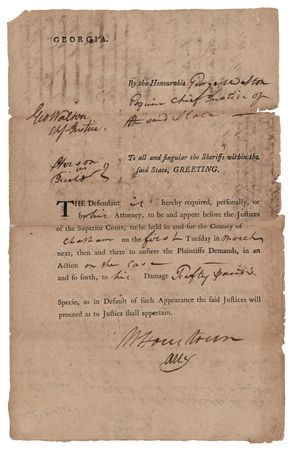 GEORGIA.
By the Honourable George Walton
Esquire Chief Justice of
the said State
Geo Walton
To all and singular the Sheriffs within the
said State, GREETING.
THE Defendant is hereby required, personally, or
by his Attorney, to be and appear before the Justices
of the Superior Court, to be held in and for the County of
Chatham on the first Tuesday in March
next, then and there to answer the Plaintiffs Demands, in an
Action on the Case
and so forth, to his Damage Fifty pounds
Specie, as in Default of such Appearance the said Justices will
proceed as to Justice shall appertain.
Atty